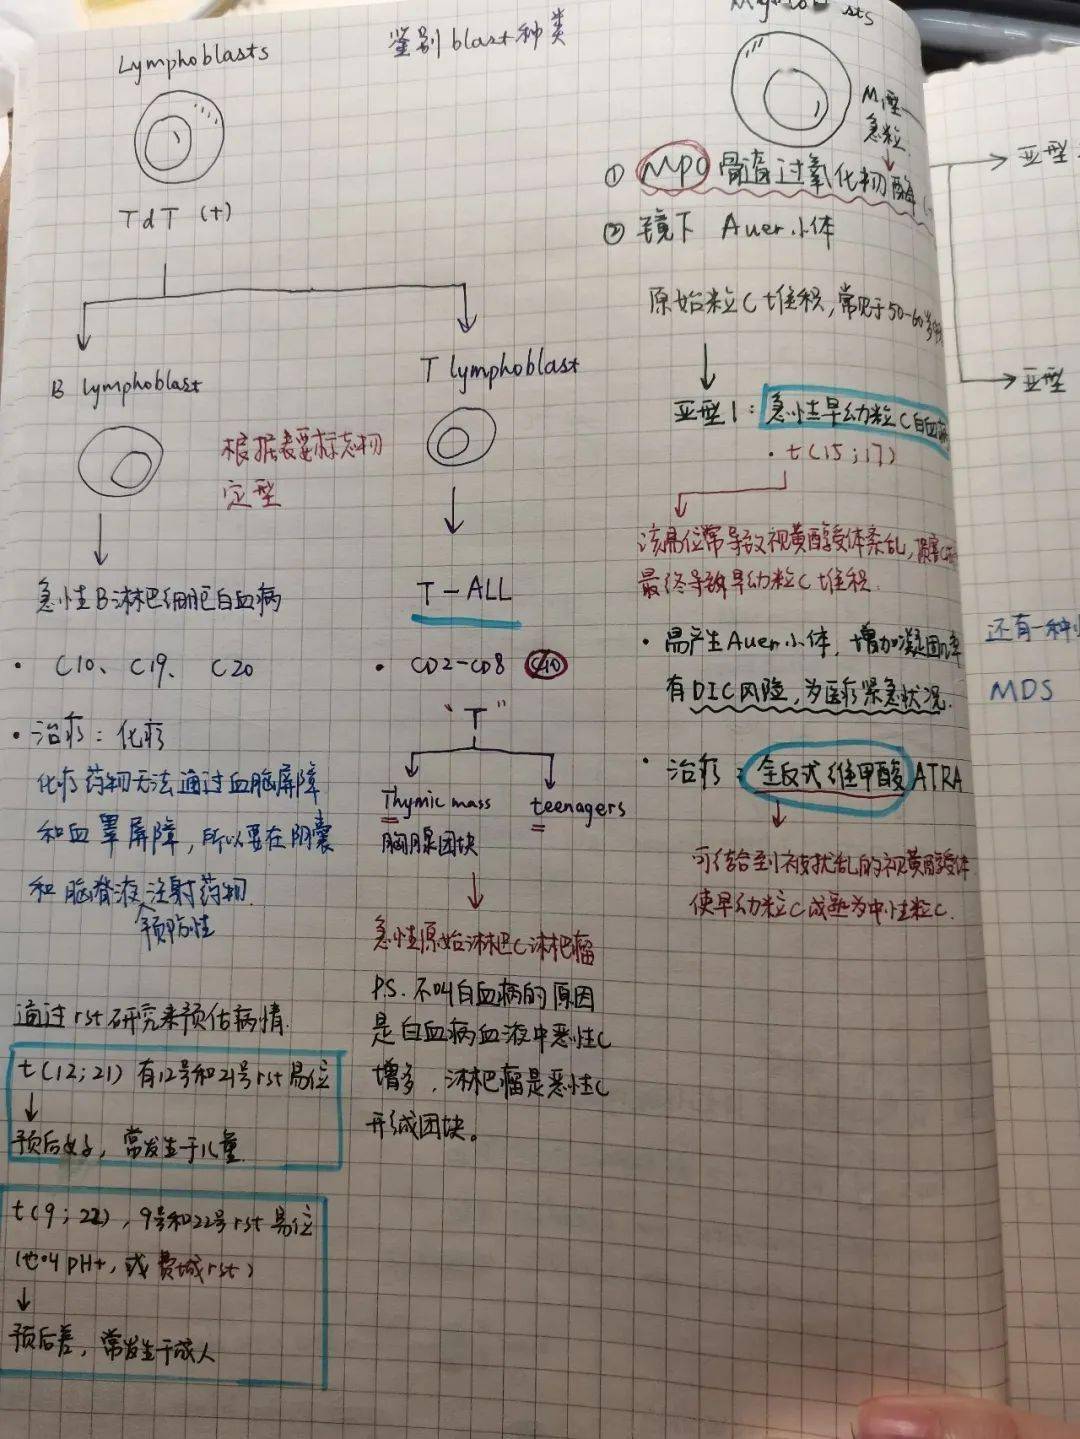 鉴别blast种类
Lymphoblasts
TdT (+)
B lymphoblast
根据表要标志物
定型
急性B淋巴细胞白血病
• C10、C19、C20
• 治疗：化疗
化疗药物无法通过血脑屏障
和血睾屏障，所以要在阴囊
和脑脊液注射药物.
预防性
通过rst研究来预估病情.
t(12;21) 有12号和21号rst易位
预后好，常发生于儿童.
t(9;22)，9号和22号rst易位
(也叫pH+,或费城rst)
预后差，常发生于成人
T lymphoblast
T-ALL
• CD2-CD8
"T"
Thymic mass
胸腺团块
teenagers
急性原始淋巴C淋巴瘤
P.S. 不叫白血病的原因
是白血病血液中恶性C
增多，淋巴瘤是恶性C
形成团块。
M1型
急粒
① MPO 骨髓过氧化物酶
② 镜下 Auer小体
原始粒C堆积，常见于50-60岁
亚型1：急性早幼粒C白血病
• t(15;17)
该易位常导致视黄醇受体紊乱，
最终导致早幼粒C堆积.
• 易产生Auer小体，增加凝固几率
有DIC风险，为医疗紧急状况.
• 治疗：全反式维甲酸ATRA
可结合到被扰乱的视黄醇受体
使早幼粒C成熟为中性粒C.
亚型
亚型
还有一种
MDS